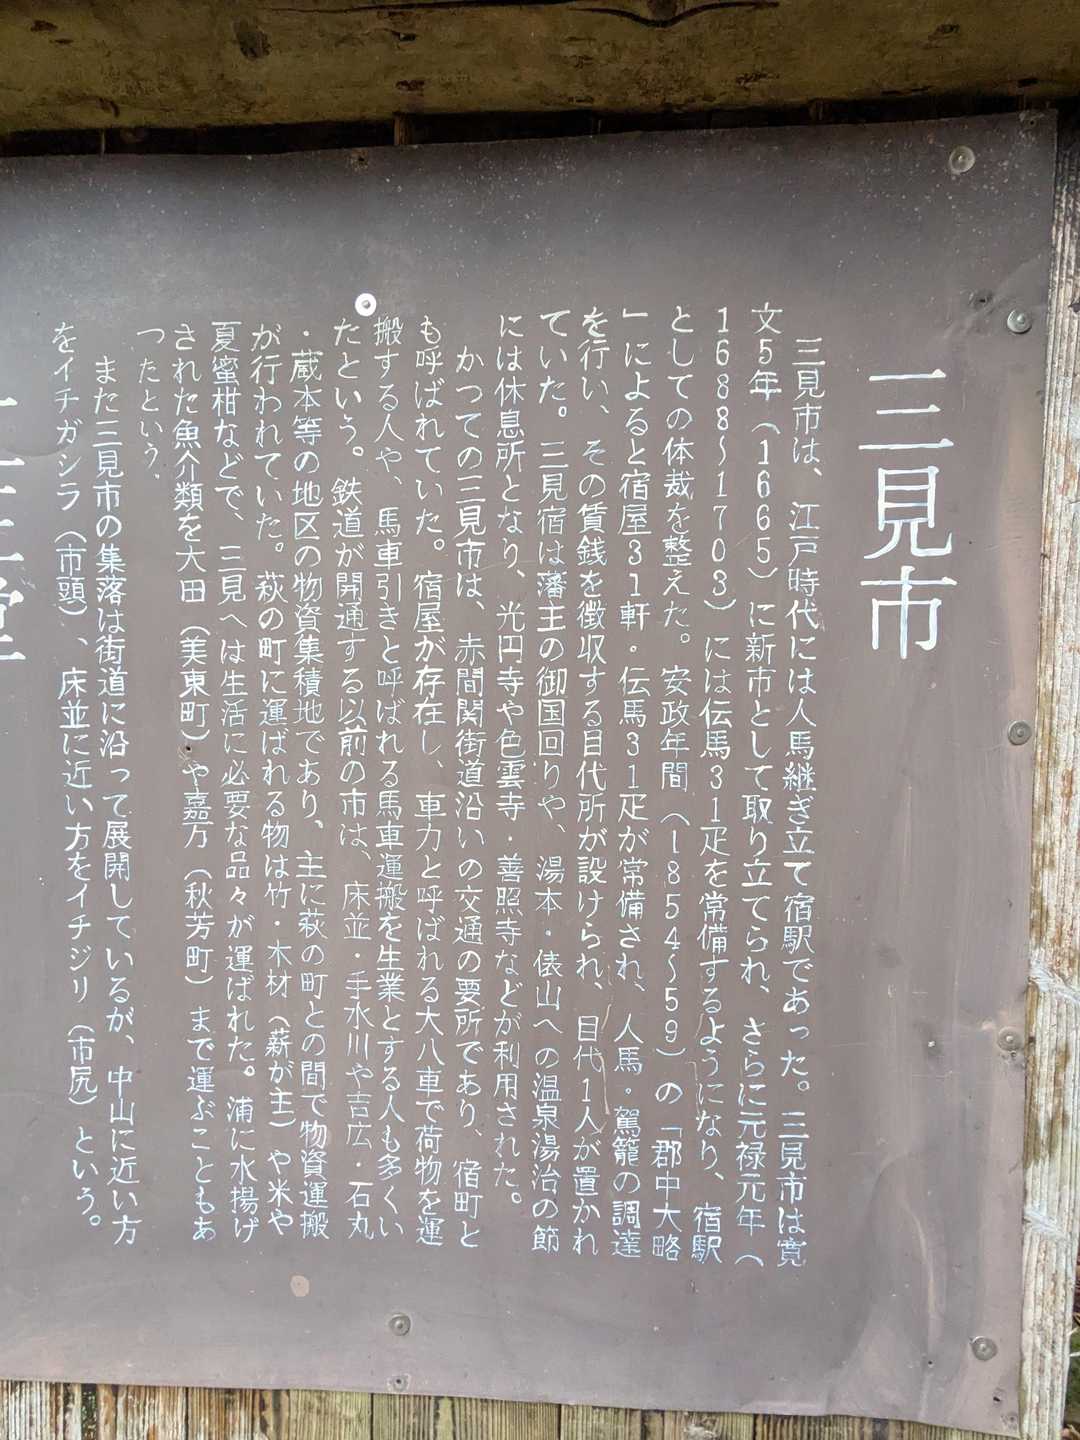 三見市
三見市は、江戸時代には人馬継ぎ立て宿駅であった。三見市は寛
文5年（1665）に新市として取り立てられ、さらに元禄元年（
1688〜1703）には伝馬31疋を常備するようになり、宿駅
としての体裁を整えた。安政年間（1854〜59）の「郡中大略
」によると宿屋31軒・伝馬31疋が常備され、人馬・駕籠の調達
を行い、その賃銭を徴収する目代所が設けられ、目代1人が置かれ
ていた。三見宿は藩主の御国回りや、湯本・俵山への温泉湯治の節
には休息所となり、光円寺や色雲寺・善照寺などが利用された。
かつての三見市は、赤間関街道沿いの交通の要所であり、宿町と
も呼ばれていた。宿屋が存在し、車力と呼ばれる大八車で荷物を運
搬する人や、馬車引きと呼ばれる馬車運搬を生業とする人も多くい
たという。鉄道が開通する以前の市は、床並・手水川や吉広・石丸
・蔵本等の地区の物資集積地であり、主に萩の町との間で物資運搬
が行われていた。萩の町に運ばれる物は竹・木材（薪が主）や米や
夏蜜柑などで、三見へは生活に必要な品々が運ばれた。浦に水揚げ
された魚介類を大田（美東町）や嘉万（秋芳町）まで運ぶこともあ
ったという．
また三見市の集落は街道に沿って展開しているが、中山に近い方
をイチガシラ（市頭）、床並に近い方をイチジリ（市尻）という。